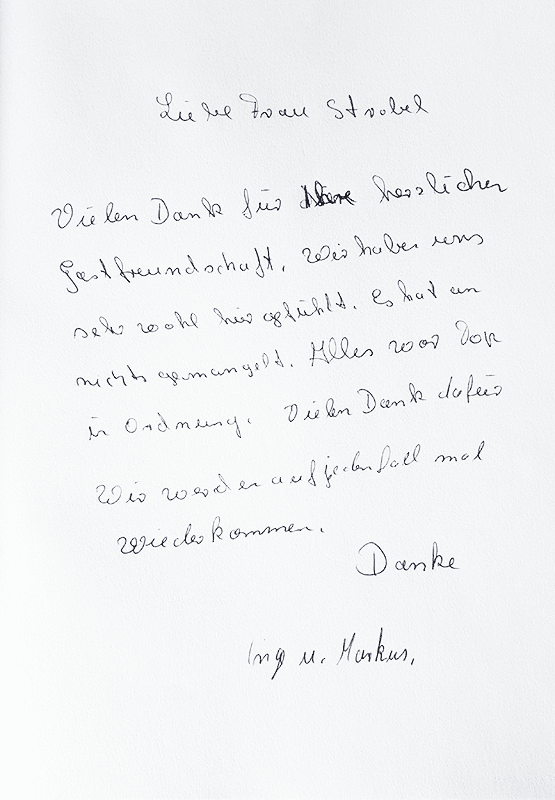 Liebe Frau Strobel
Vielen Dank für Ihre herzlicher
Gastfreundschaft. Wir haben uns
sehr wohl hier gefühlt. Es hat an
nichts gemangelt. Alles war Top
in Ordnung. Vielen Dank dafür
Wir werden auf jedenfall mal
wiederkommen.
Danke
Ing u. Markus.